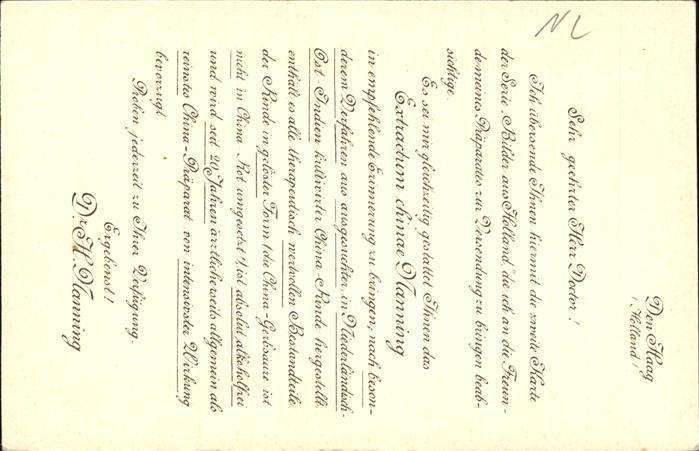 NL
Den Haag
(Holland)
Sehr geehrter Herr Doctor!
Ich übersende Ihnen hiermit die zweite Karte
der Serie „Bilder aus Holland," die ich an die Freun-
de meines Präparates zur Versendung zu bringen beab-
sichtige.
Es sei mir gleichzeitig gestattet Ihnen das
Extractum chinae Nanning
in empfehlende Erinnerung zu bringen; nach beson-
derem Verfahren aus ausgesuchter, in Niederländisch-
Ost-Indien kultivirter China-Rinde hergestellt,
enthält es alle therapeutisch wertvollen Bestandteile
der Rinde in gelöster Form (die China-Gerbsäure ist
nicht in China-Rot umgesetzt!) ist absolut alkoholfrei
und wird seit 20 Jahren ärztlicherseits allgemein als
reinstes China-Präparat von intensivster Wirkung
bevorzugt.
Proben jederzeit zu Ihrer Verfügung.
Ergebenst!
Dr. H. Nanning